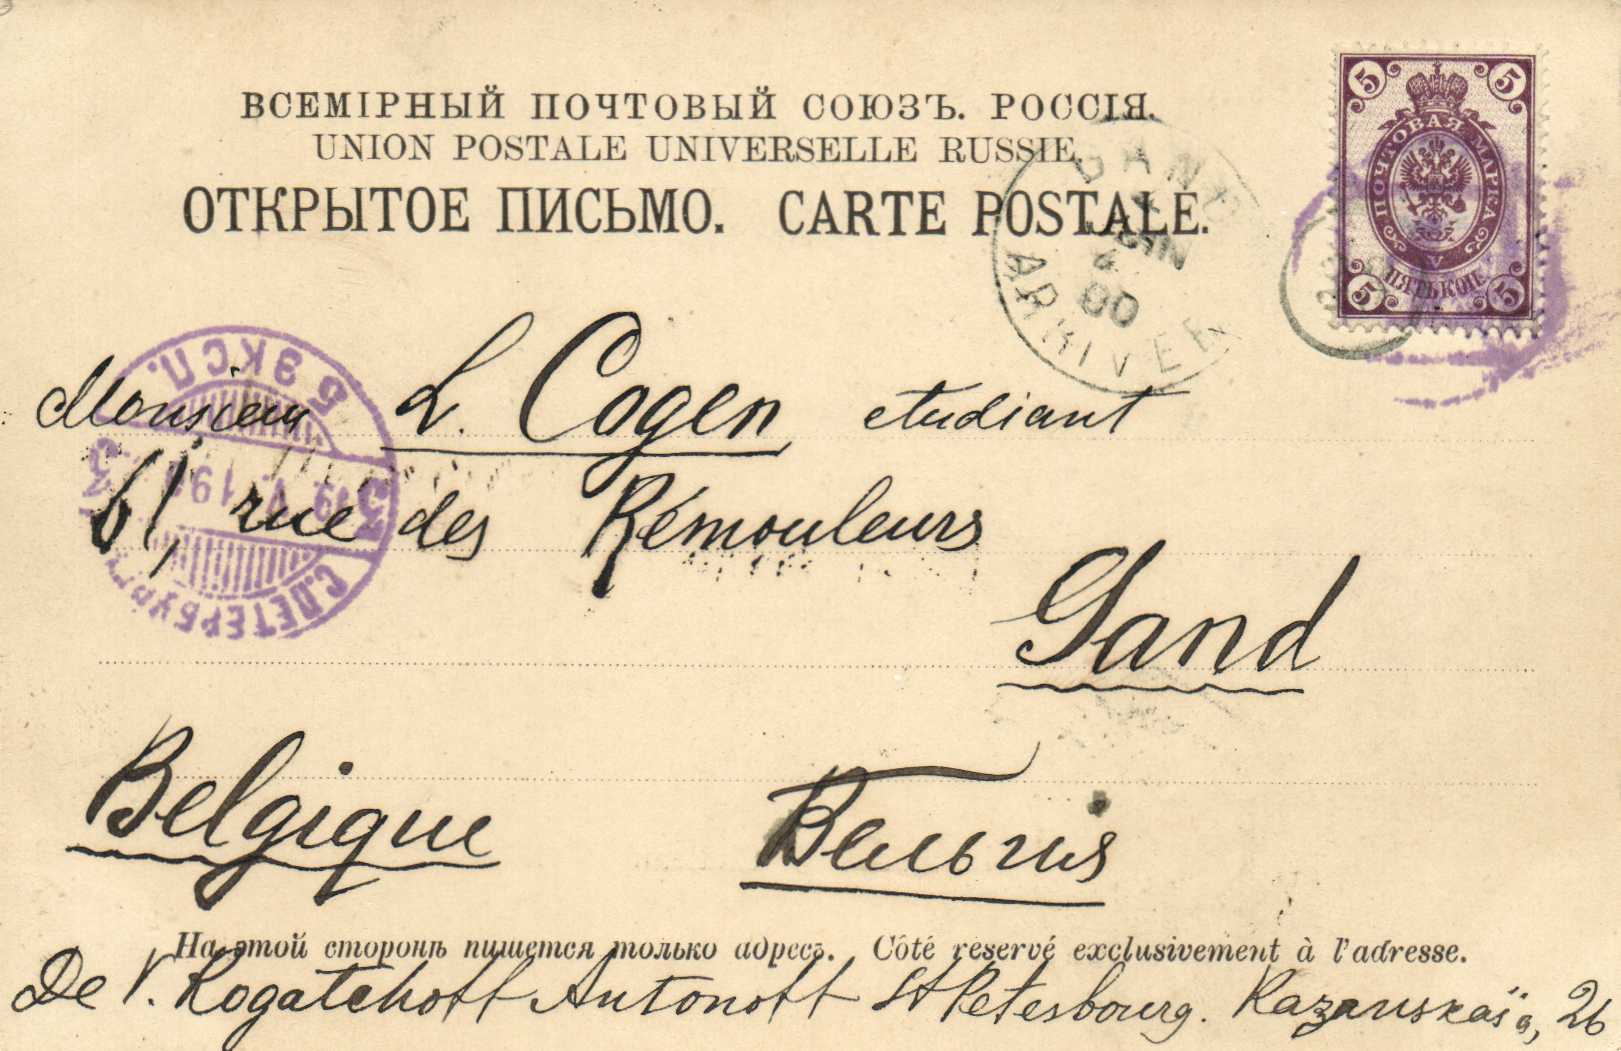 ВСЕМІРНЫЙ ПОЧТОВЫЙ СОЮЗЪ. РОССІЯ.
UNION POSTALE UNIVERSELLE RUSSIE.
ОТКРЫТОЕ ПИСЬМО. CARTE POSTALE.
5 5
ПОЧТОВАЯ МАРКА
V
ПЯТЬ КОП.
5 5
GAND
JUIN
4
00
ARRIVEE
5 ЭКСП.
3 3
С.ПЕТЕРБУРГЪ
Monsieur L. Cogen etudiant
61, rue des Rémouleurs
Gand
Belgique Бельгия
На этой сторонѣ пишется только адресъ. Côté reservé exclusivement à l'adresse.
De V. Rogatchoff Antonoff St Petesbourg. Kazanskaïa, 26